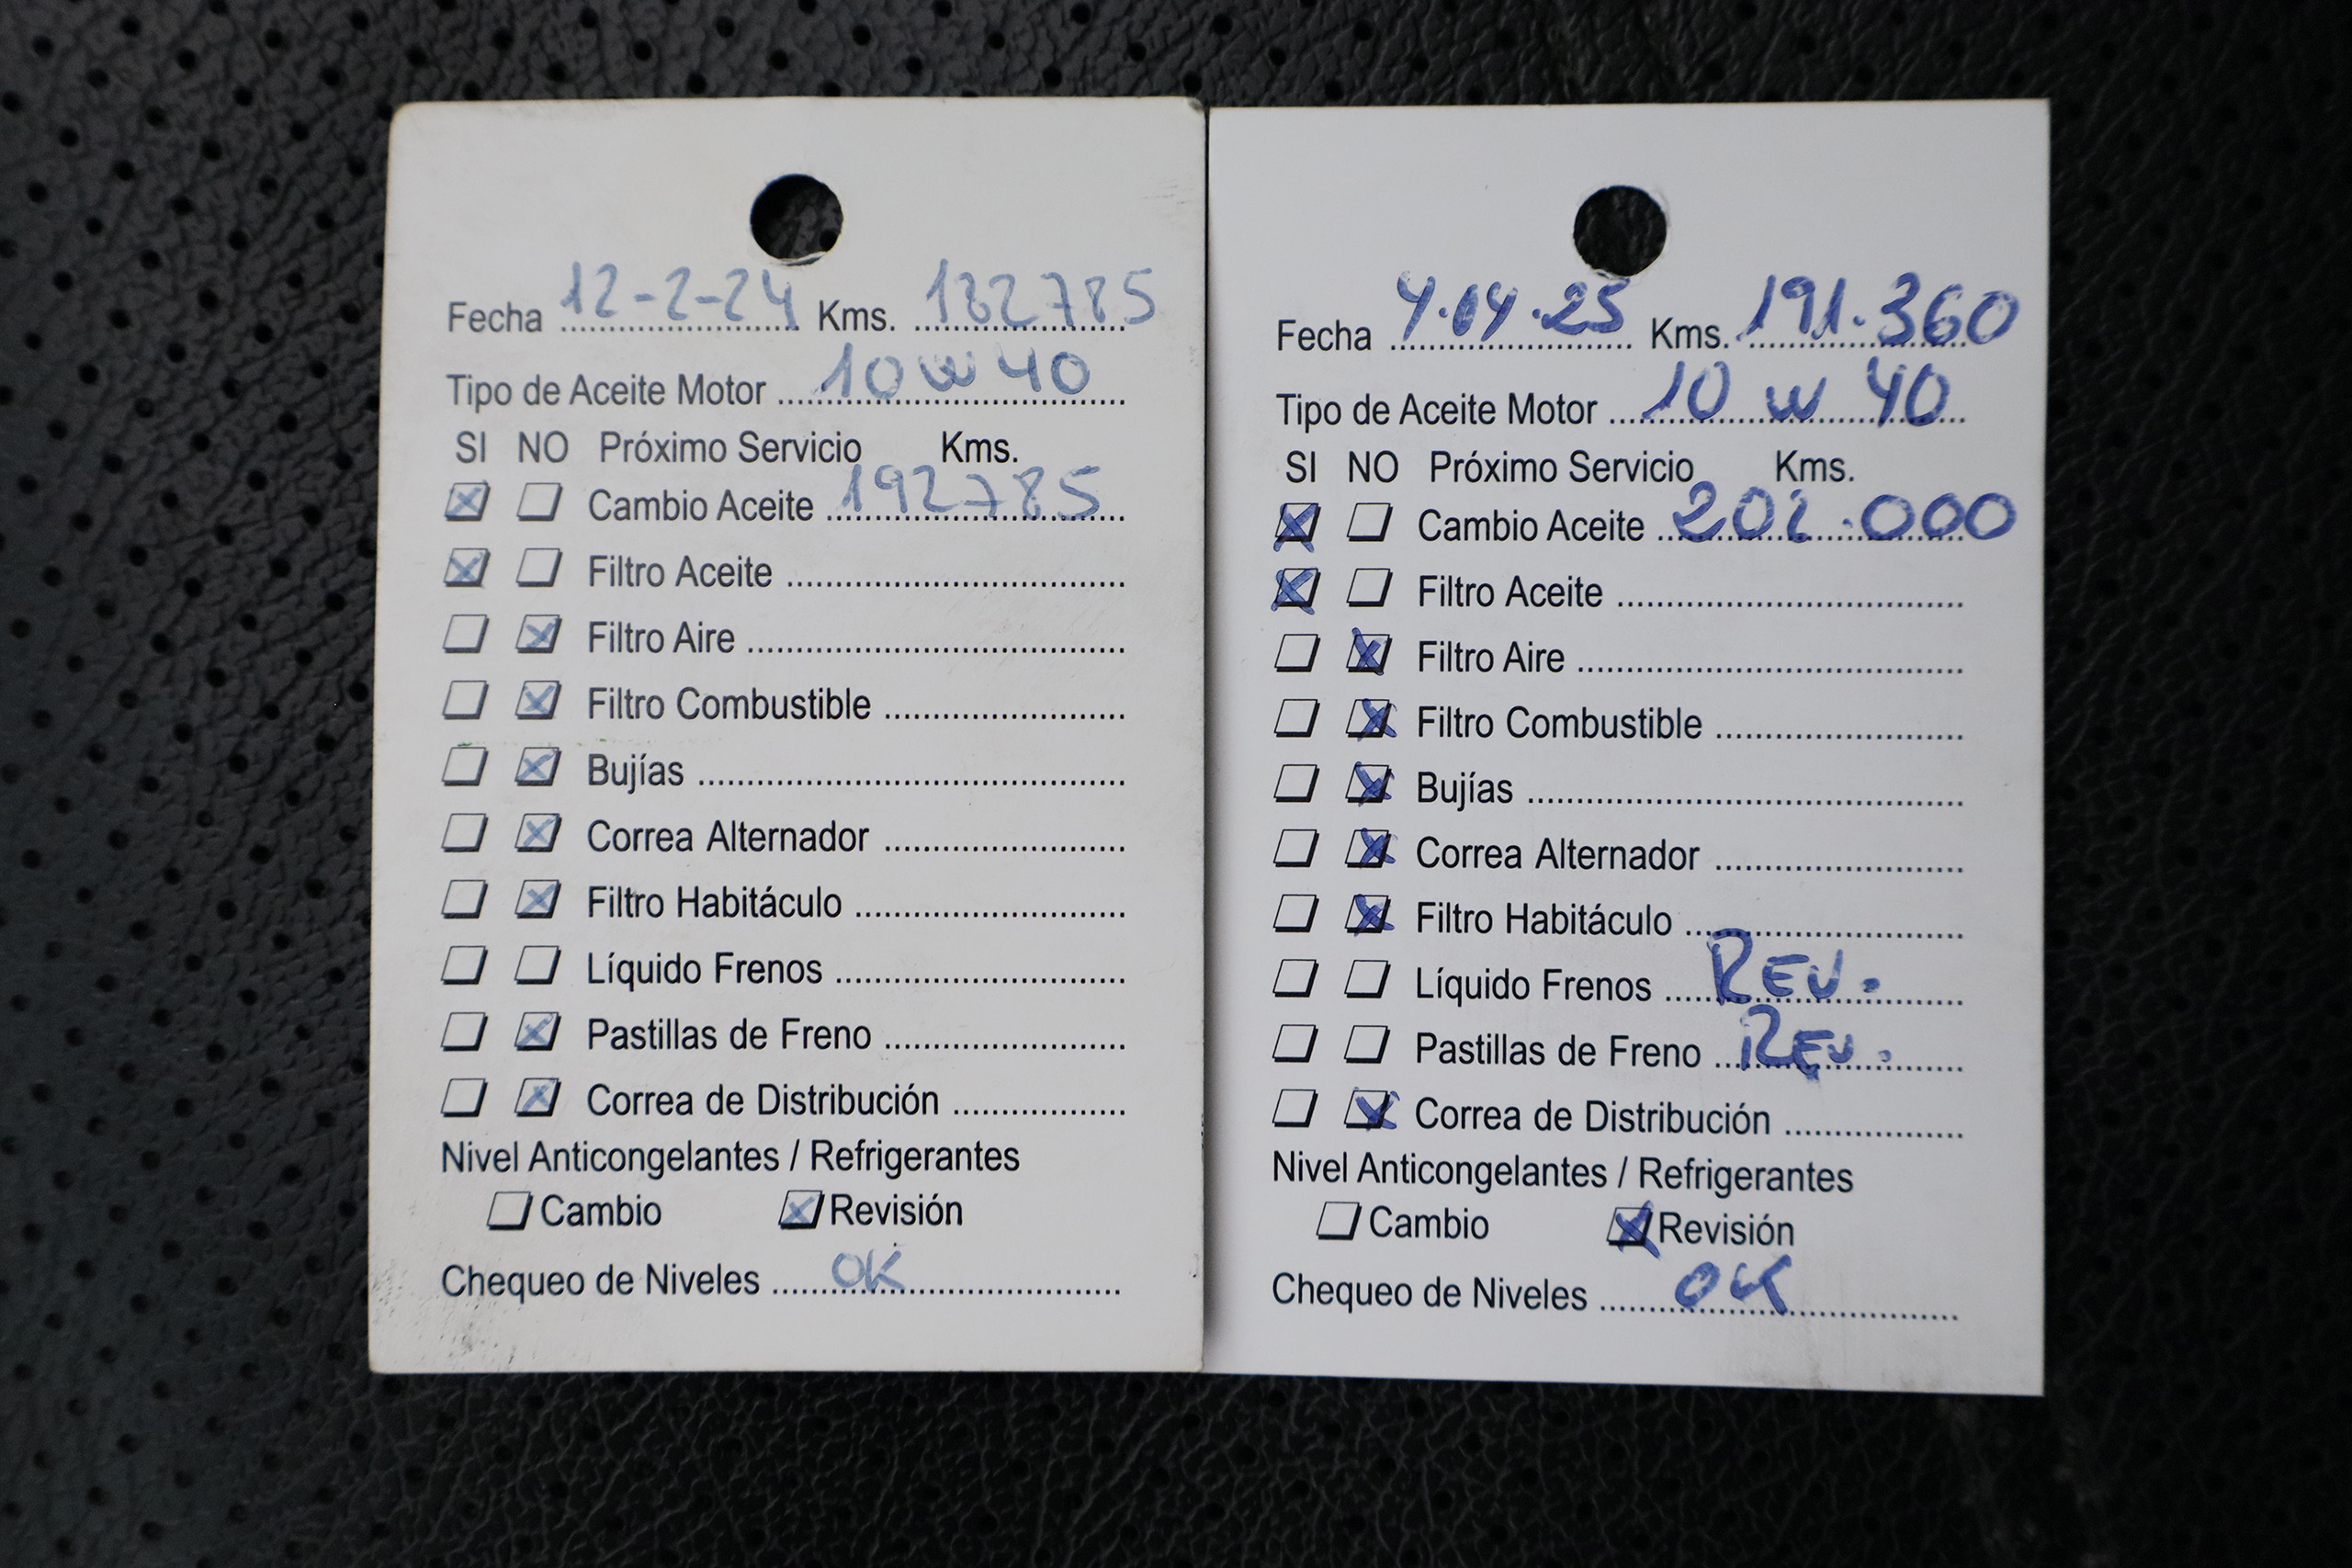 Fecha 12-2-24 Kms. 182785
Tipo de Aceite Motor 10 w 40
SI NO Próximo Servicio Kms.
Cambio Aceite 192785
Filtro Aceite
Filtro Aire
Filtro Combustible
Bujías
Correa Alternador
Filtro Habitáculo
Líquido Frenos
Pastillas de Freno
Correa de Distribución
Nivel Anticongelantes / Refrigerantes
Cambio Revisión
Chequeo de Niveles OK
Fecha 4.04.25 Kms. 191.360
Tipo de Aceite Motor 10 w 40
SI NO Próximo Servicio Kms.
Cambio Aceite 201.000
Filtro Aceite
Filtro Aire
Filtro Combustible
Bujías
Correa Alternador
Filtro Habitáculo
Líquido Frenos REV.
Pastillas de Freno REV.
Correa de Distribución
Nivel Anticongelantes / Refrigerantes
Cambio Revisión
Chequeo de Niveles OK